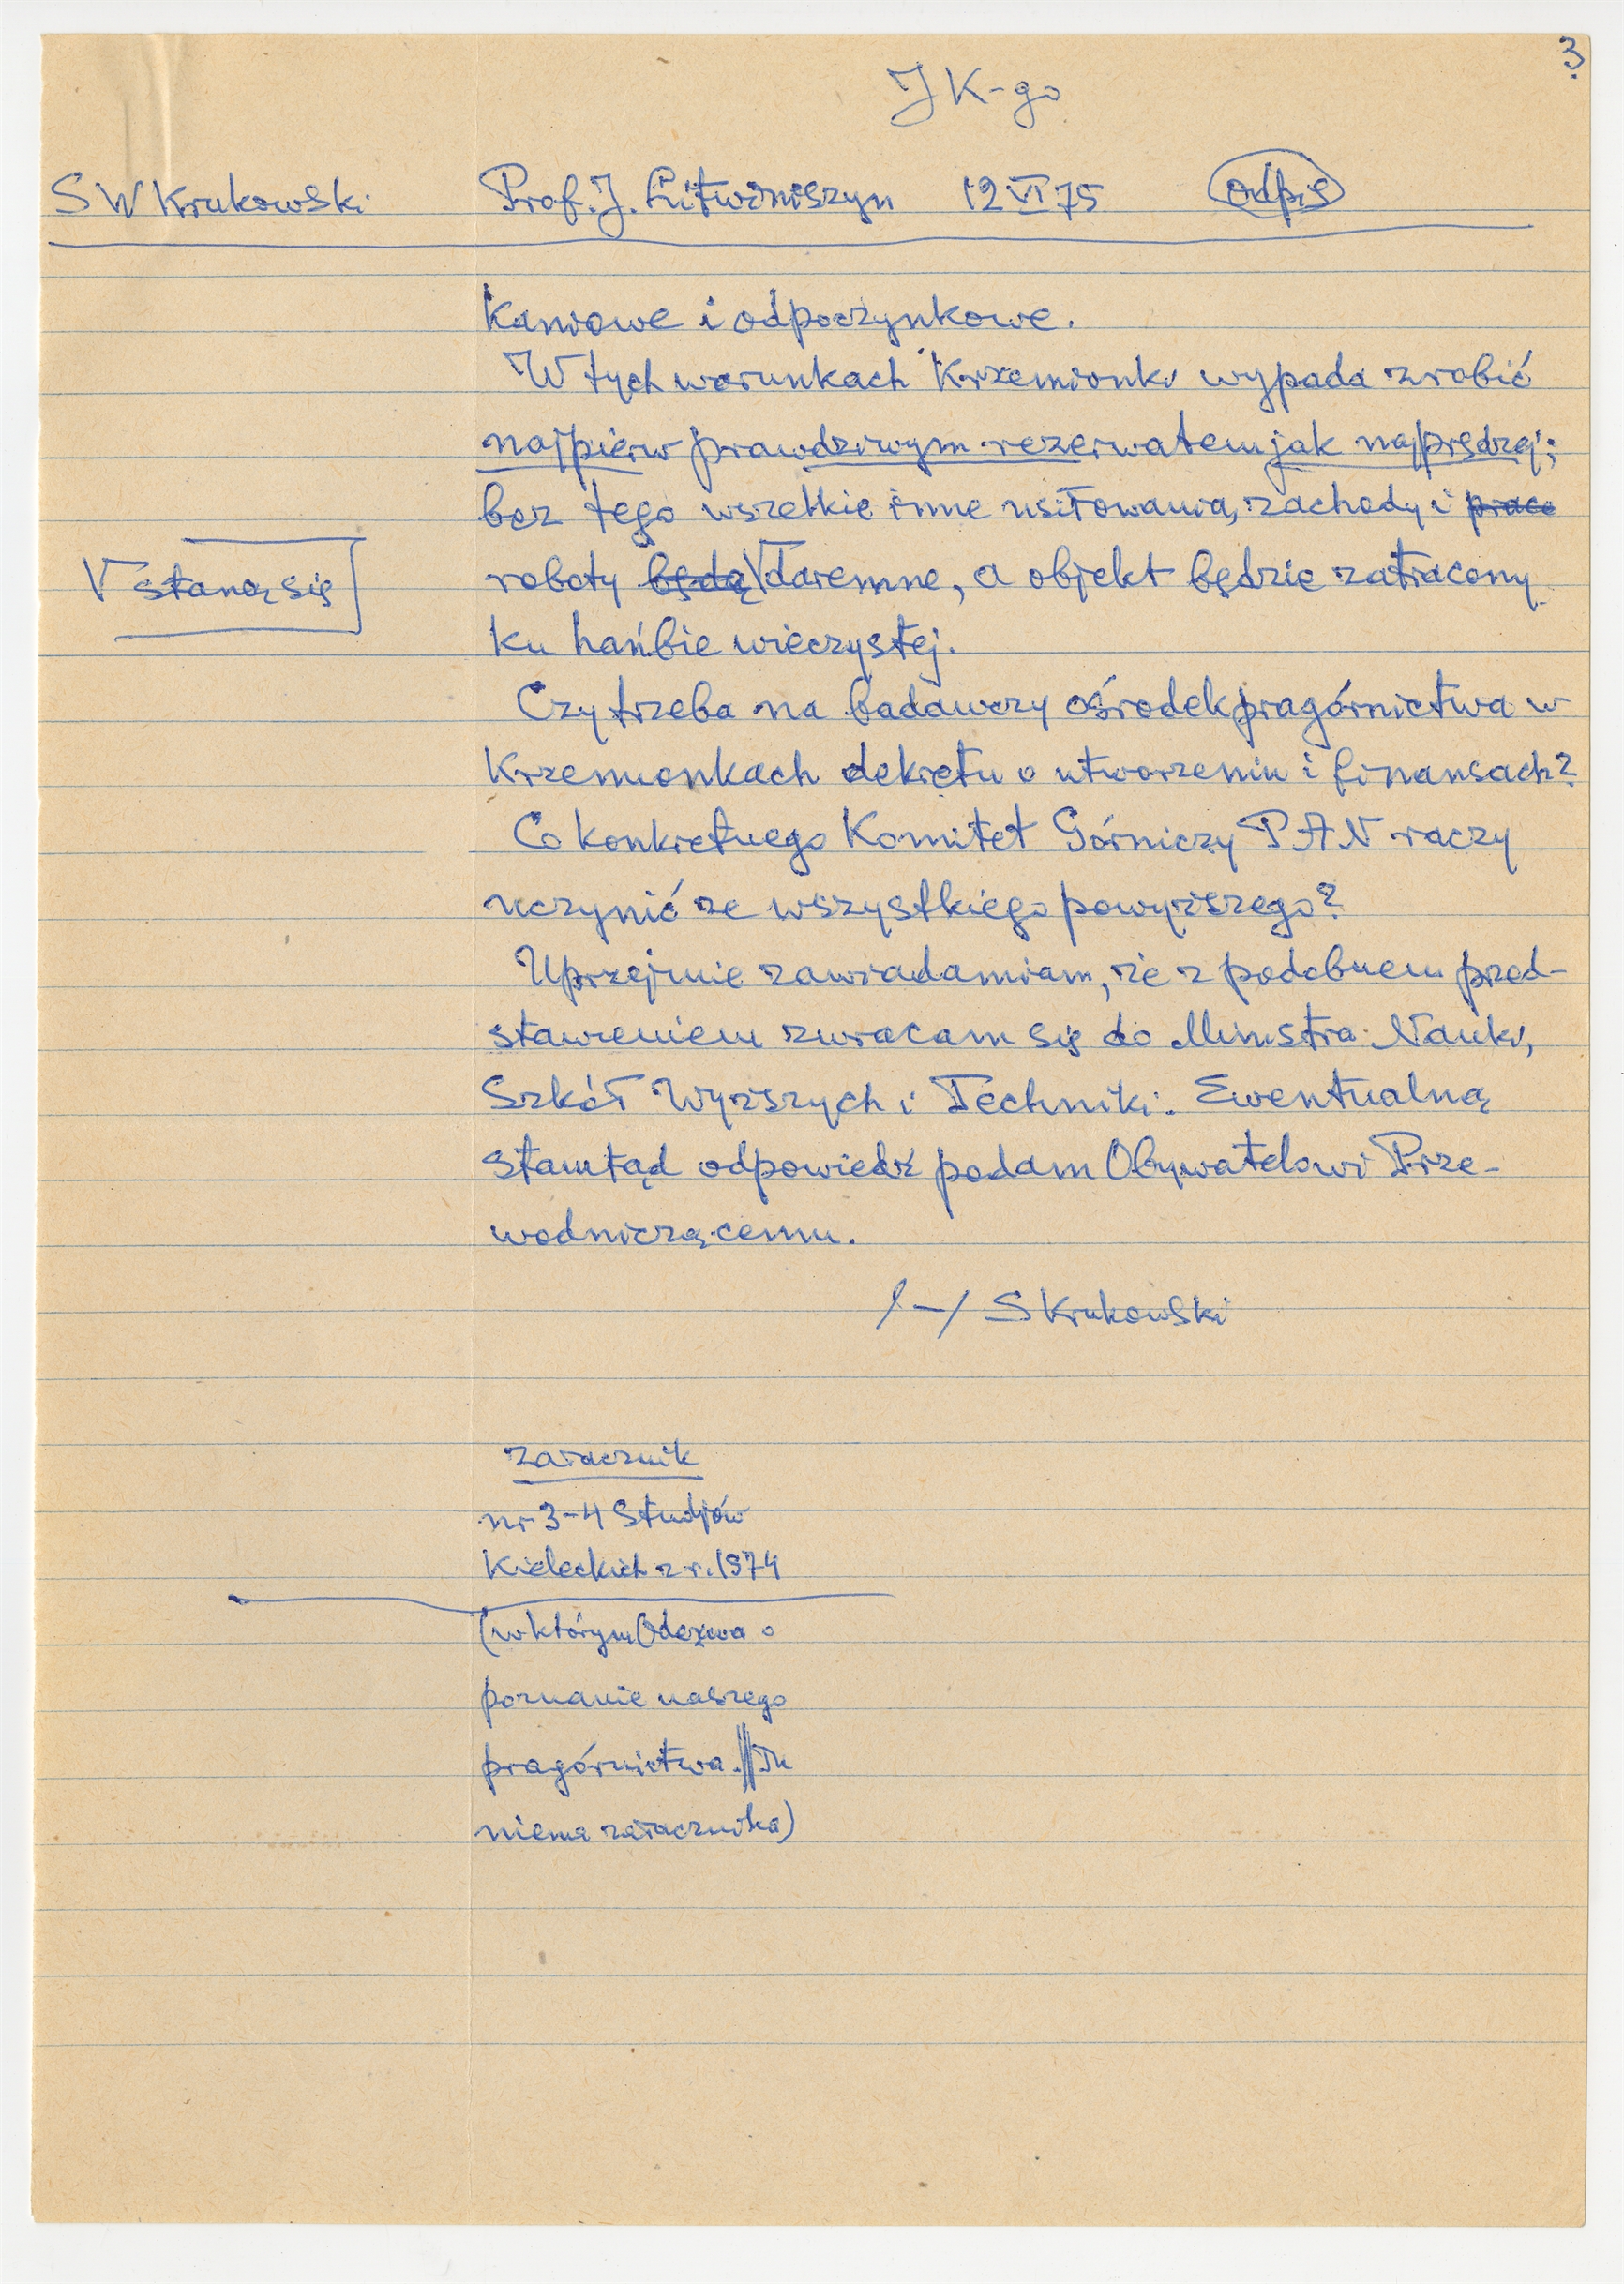 3.
JK-go
SW Krukowski Prof. J. Litwiniszyn 12 VI 75 odpis
kaniowe i odpoczynkowe.
W tych warunkach Krzemionki wypada zrobić
najpierw prawdziwym rezerwatem jak najprędzej;
bez tego wszelkie inne usiłowania, zachody i prace
V staną się
roboty będą V daremne, a objekt będzie zatracony
ku hańbie wieczystej.
Czy trzeba na badawczy ośrodek pragórnictwa w
Krzemionkach dekretu o utworzeniu i finansach?
Co konkretnego Komitet Górniczy PAN raczy
uczynić ze wszystkiego powyższego?
Uprzejmie zawiadamiam, że z podobnem przed-
stawieniem zwracam się do Ministra Nauki,
Szkół Wyższych i Techniki. Ewentualną
stamtąd odpowiedź podam Obywatelowi Prze-
wodniczącemu.
/-/ S Krukowski
załącznik
nr 3-4 Studjów
Kieleckich z r. 1974
(w którym Odezwa o
poznanie naszego
pragórnictwa. || Tu
niema załącznika)